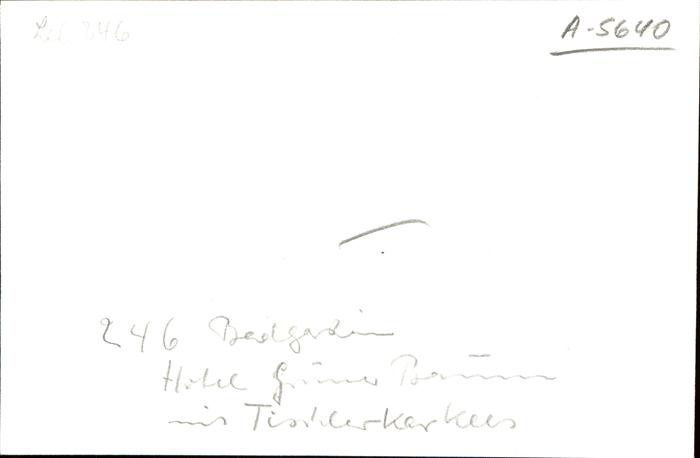 246
A-5640
246 Badgastein
Hotel Grüner Baum
mit Tischlerkarkees